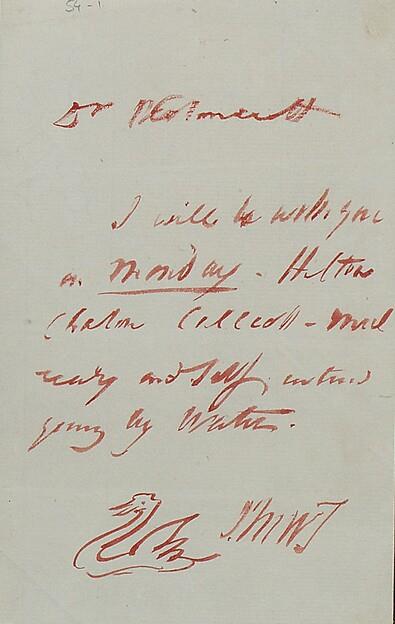 54-1
Dr
I will be with you
on Monday - Hilton
Callcott - Mul
ready and Self intend
going by Water.
JMWT